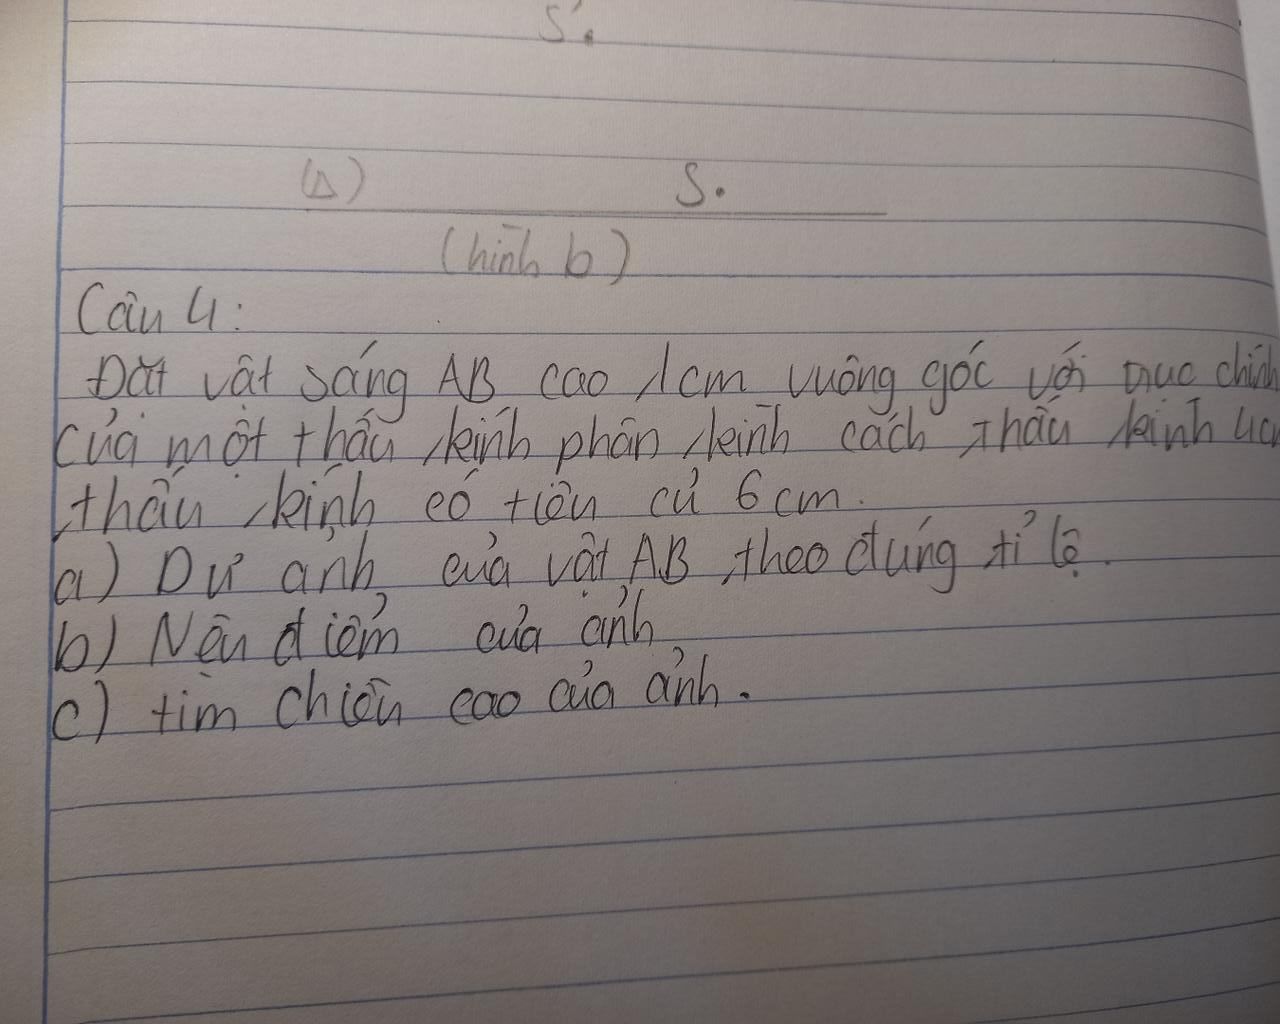 S'.
(Δ) S.
(hình b)
Câu 4:
Đặt vật sáng AB cao 1cm vuông góc với trục chính
của một thấu kính phân kình cách thấu kính 4cm
thấu kính có tiêu cự 6cm.
a) Dự ảnh của vật AB theo đúng tỉ lệ.
b) Nêu điểm của ảnh
c) tìm chiều cao của ảnh.